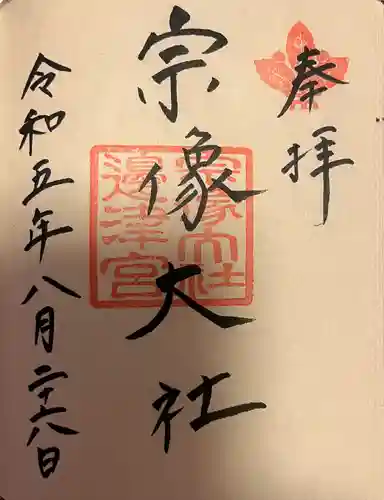 奉拝
宗像大社
宗像大社
邉津宮
令和五年八月二十八日